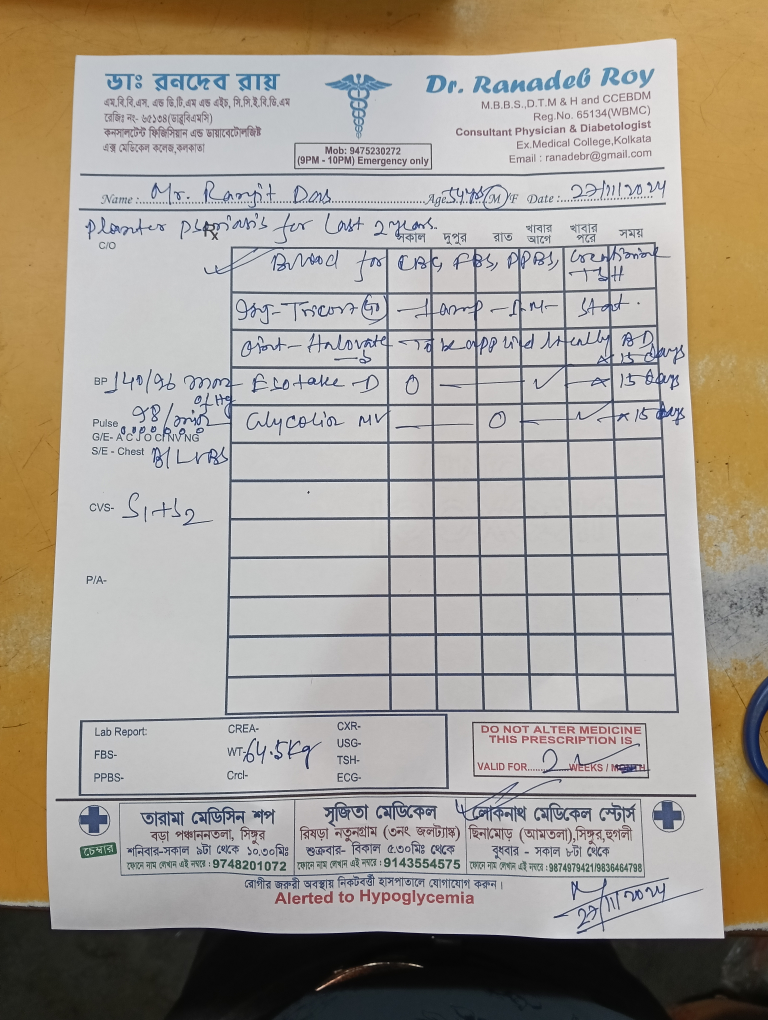 ডাঃ রনদেব রায়
এম.বি.বি.এস. এন্ড ডি.টি.এম এন্ড এইচ, সি.সি.ই.বি.ডি.এম
রেজিঃ নং- ৬৫১৩৪(ডাব্লুবিএমসি)
কনসালটেন্ট ফিজিসিয়ান এন্ড ডায়াবেটোলজিষ্ট
এক্স মেডিকেল কলেজ,কলকাতা
Mob: 9475230272
(9PM - 10PM) Emergency only
Dr. Ranadeb Roy
M.B.B.S.,D.T.M & H and CCEBDM
Reg.No. 65134(WBMC)
Consultant Physician & Diabetologist
Ex.Medical College,Kolkata
Email : ranadebr@gmail.com
Name : Mr. Ranjit Das Age 54 yrs M/F Date : 27/11/2024
Planter psoriasis for last 2 years.
C/O Rx সকাল দুপুর রাত খাবার আগে খাবার পরে সময়
Blood for CBC, FBS, PPBS, Creatinine TSH
Inj - Tricort - 1 amp - I.M - Stat.
Oint - Halovate - S - To be applied locally BD x 15 days
BP 140/96 mm of Hg
Ecotake - D 0 — ✓ x 15 days
Pulse 98/min
Glycolin MV — 0 — ✓ x 15 days
G/E- A C J O Cl NV NG
S/E - Chest B/L VBS
CVS- S1+S2
P/A-
Lab Report: CREA- CXR-
FBS- WT- 64.5kg USG-
TSH-
PPBS- Crcl- ECG-
DO NOT ALTER MEDICINE
THIS PRESCRIPTION IS
VALID FOR 2 WEEKS / MONTH
চেম্বার
তারামা মেডিসিন শপ
বড়া পঞ্চাননতলা, সিঙ্গুর
শনিবার-সকাল ৯টা থেকে ১০.৩০মিঃ
ফোনে নাম লেখান এই নম্বরে : 9748201072
সৃজিতা মেডিকেল
রিষড়া নতুনগ্রাম (৩নং জলট্যাঙ্ক)
শুক্রবার- বিকাল ৫.৩০মিঃ থেকে
ফোনে নাম লেখান এই নম্বরে : 9143554575
লোকনাথ মেডিকেল স্টোর্স
ছিনামোড় (আমতলা),সিঙ্গুর,হুগলী
বুধবার - সকাল ৮টা থেকে
ফোনে নাম লেখান এই নম্বরে - 9874979421/9836464798
রোগীর জরুরী অবস্থায় নিকটবর্ত্তী হাসপাতালে যোগাযোগ করুন।
Alerted to Hypoglycemia
27/11/2024